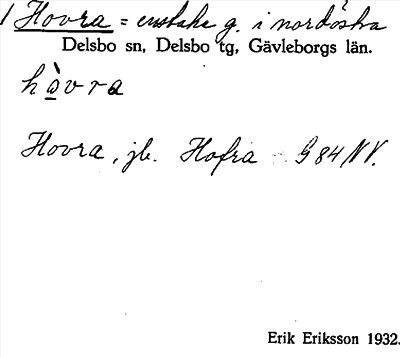 1 Hovra = enstaka g. i nordöstra
Delsbo sn, Delsbo tg, Gävleborgs län.
hòvra
Hovra, jb. Hofra - G 84 NV.
Erik Eriksson 1932.